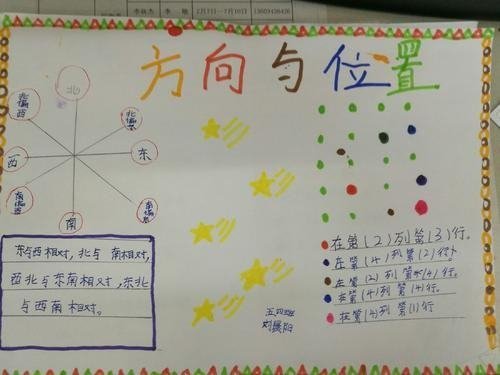 方向与位置
北
北偏西
北偏东
西
东
南偏西
南偏东
南
东与西相对，北与南相对，
西北与东南相对，东北
与西南相对。
五四班
刘晨阳
在第(2)列第(3)行。
在第(4)列第(2)行。
在第(2)列第(4)行。
在第(4)列第(4)行。
在第(4)列第(1)行